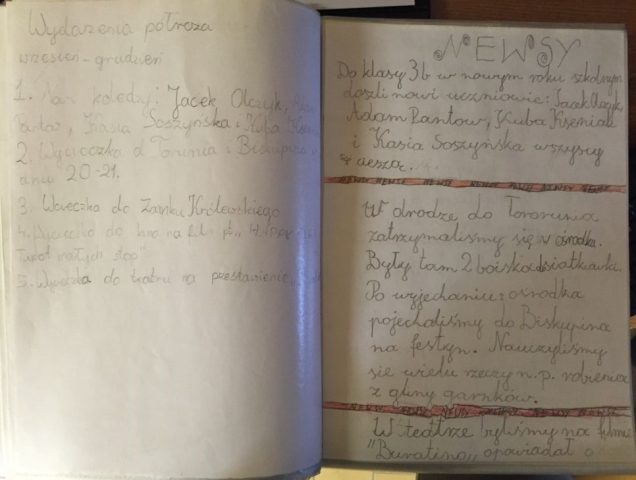 Wydarzenia półrocza
wrzesień - grudzień
1. Nasi koledzy: Jacek Olczyk,
Pantow, Kasia Soszyńska i Kuba
2. Wycieczka d Torunia i Biskupina w
dniu 20-21.
3. Wycieczka do Zamku Królewskiego
4. do kina na film pt.
Tupot małych stóp"
5. Wycieczka do teatru na przestawienie
NEWSY
Do klasy 3b w nowym roku szkolnym
doszli nowi uczniowie: Jacek Olczyk,
Adam Pantow, Kuba Kseniak
i Kasia Soszyńska wszyscy
cieszą.
NEWSY NEWSY NEWSY NEWSY NEWSY NEWSY NEWSY
W drodze do Tororunia
zatrzymaliśmy się w ośrodku.
Były tam 2 boiska do siatkuwki.
Po wyjechaniu z ośrodka
pojechaliśmy do Biskupina
na festyn. Nauczyliśmy
sie wielu rzeczy n.p. robienia
z gliny garnków.
NEWSY NEWSY NEWSY NEWSY NEWSY NEWSY
W teatrze byliśmy na filmie
"Buratino", opowiadał o